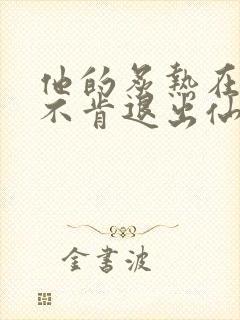 他的炙熱在
不肯退出仙
金書波